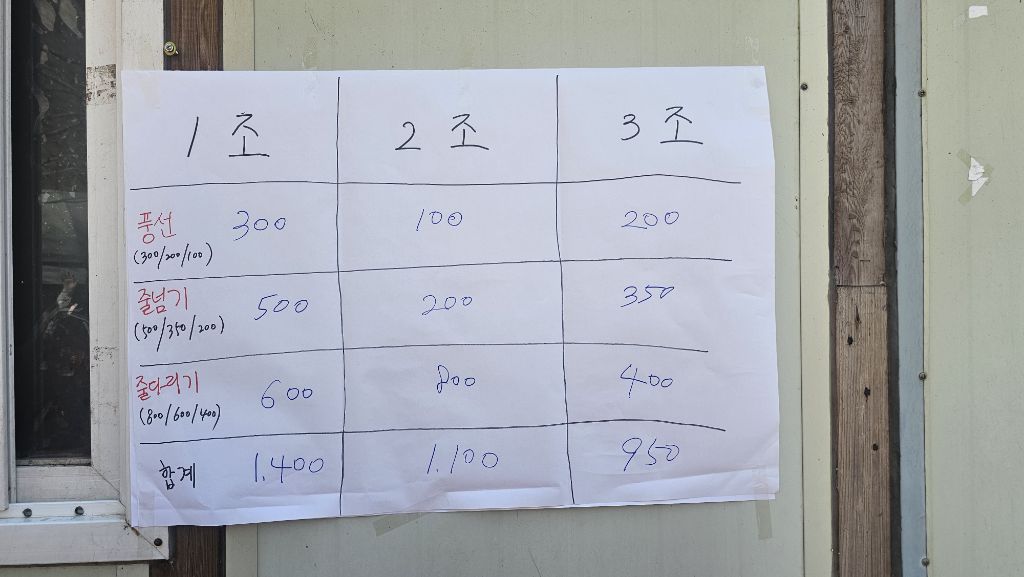 1 조 2 조 3 조
풍선 300 100 200
(300/200/100)
줄넘기 500 200 350
(500/350/200)
줄다리기 600 800 400
(800/600/400)
합계 1.400 1.100 950